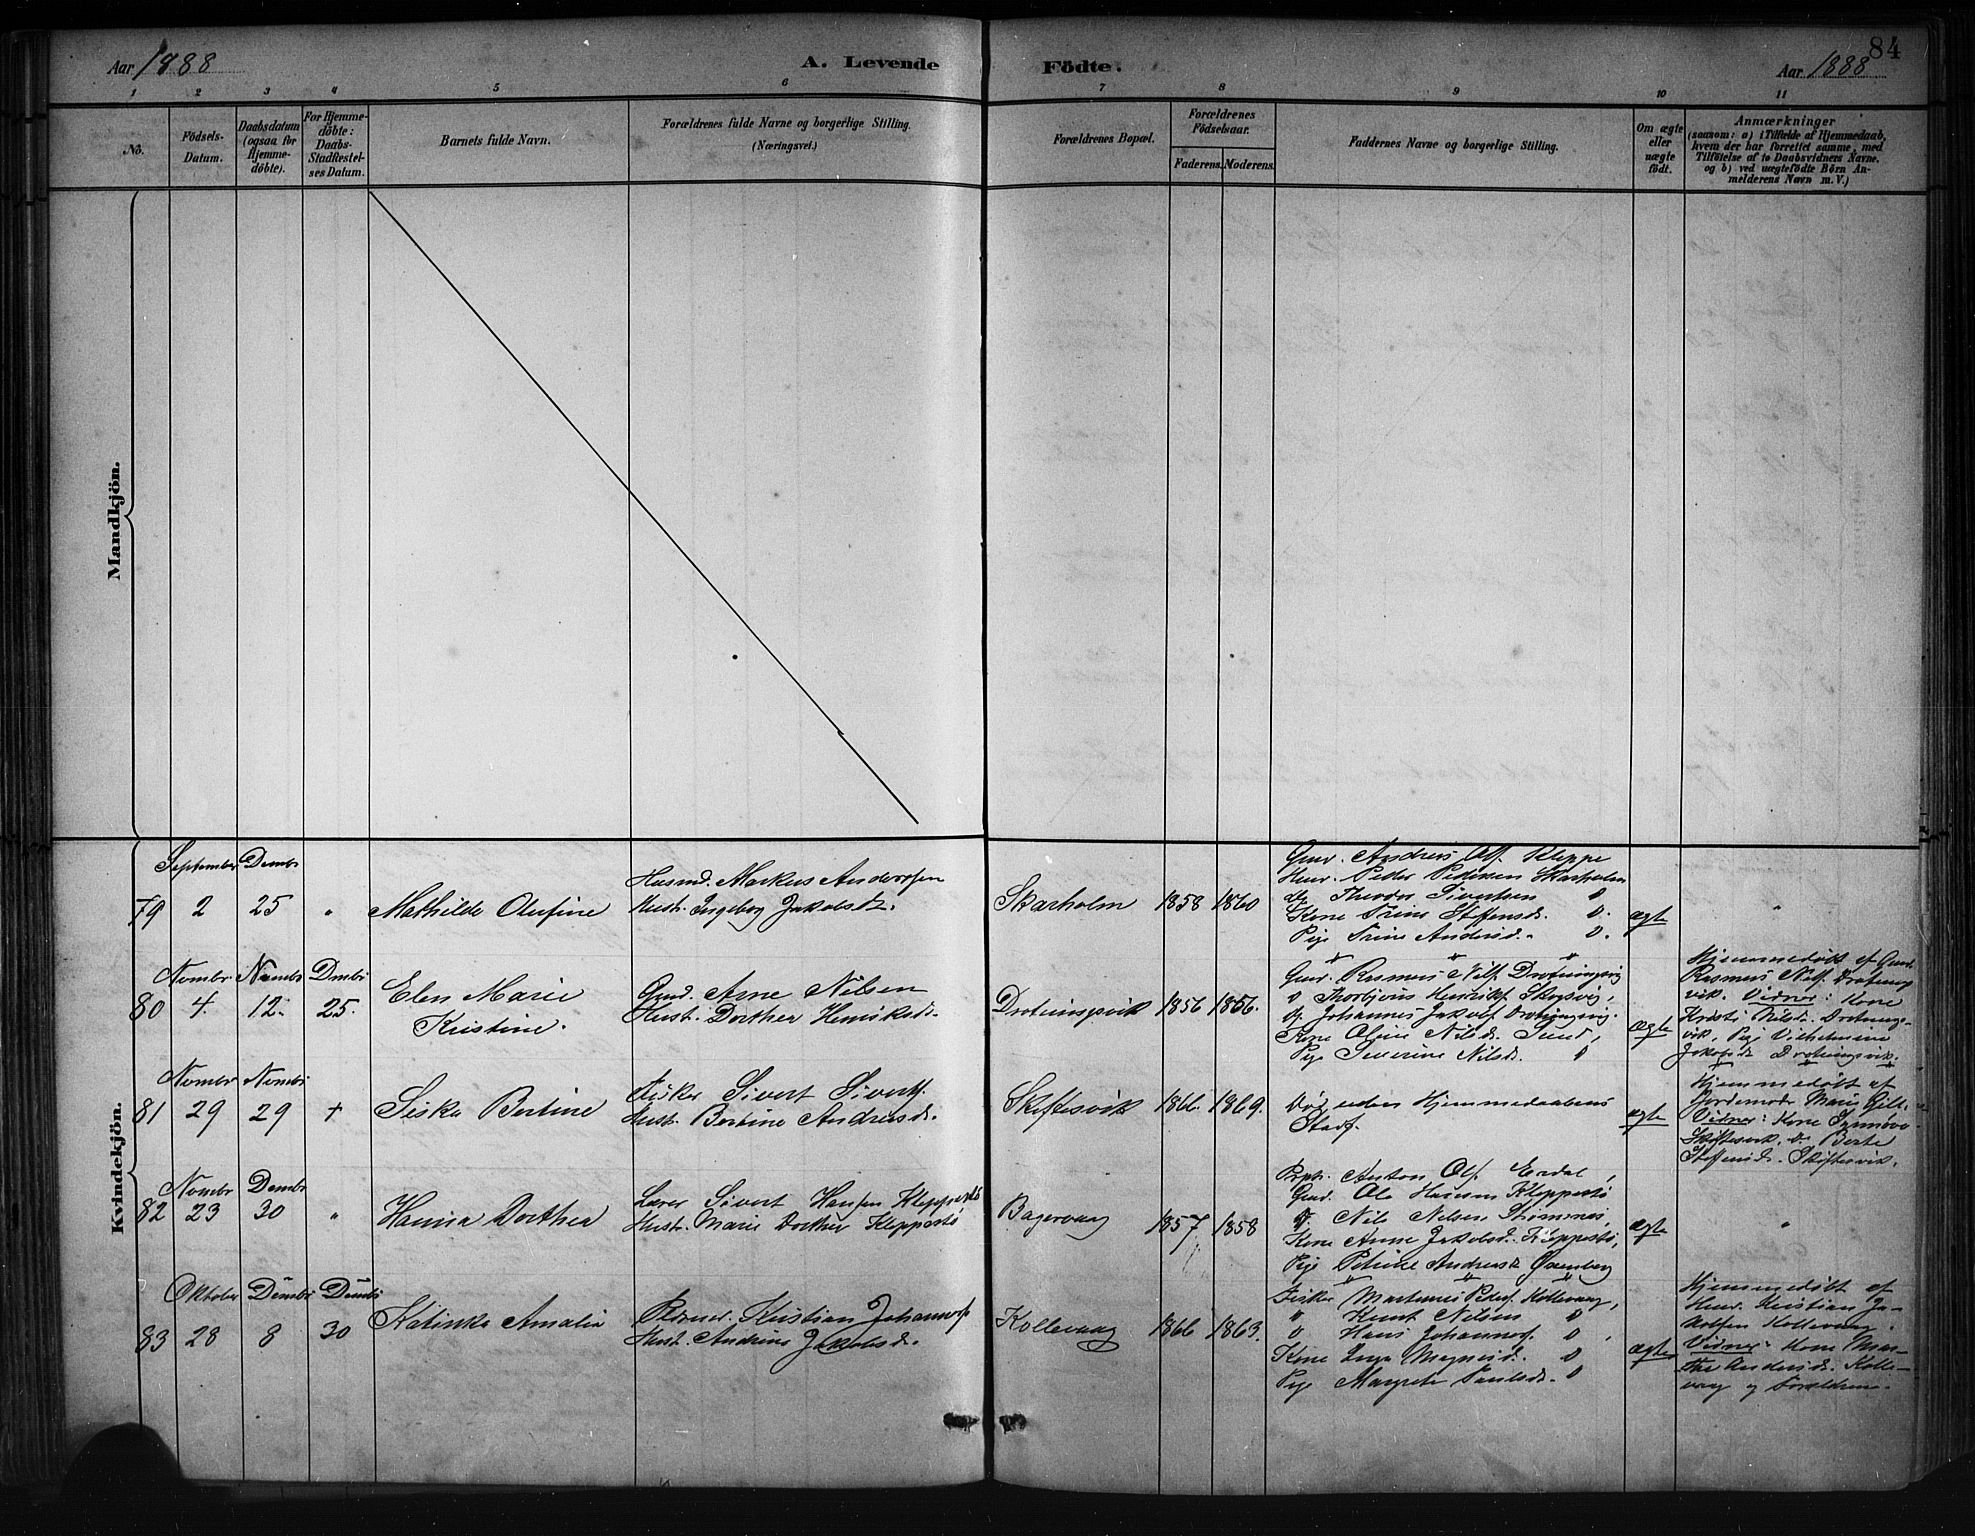 Aar 1888
A. Levende
Födte.
84
Aar 1888
1 2 3 4 5 6 7 8 9 10 11
No.
Födsels-
Datum.
Daabsdatum
(ogsaa for
Hjemme-
döbte).
For Hjemme-
döbte:
Daabs-
Stadfæstel-
ses Datum.
Barnets fulde Navn.
Forældrenes fulde Navne og borgerlige Stilling.
(Næringsvei.)
Forældrenes Bopæl.
Forældrenes
Födselsaar.
Faderens. Moderens.
Faddernes Navne og borgerlige Stilling.
Om ægte
eller
uægte
födt.
Anmærkninger
(saasom: a) i Tilfælde af Hjemmedaab,
hvem der har forrettet samme, med
Tilföielse af to Daabsvidners Navne,
og b) ved uægtefödte Börn An-
melderens Navn m. V.)
Mandkjön.
Kvindekjön.
September Dembr
79 2 25 "
Mathilde Olufine
Husmd. Markus Andersen
Hust. Ingeborg Jakobsd.
Skarholm 1858 1860
Gmd. Andreas Ols. Kleppe
Peder Pedersen Skarholm
do Theodor Sivertsen D
Kone Trine Steffensd. D.
Pige Trine Andersd. D.
ægte
"
Novmbr Novmbr Dmbr
80 4. 12. 25.
Elen Marie
Kristine.
Gmd. Arne Nilsen
Hust. Dorthea Henriksd.
Drotningsvik 1856 1866.
Gmd. Rasmus Nils. Drotningsvig
D Thorbjörn Henriks. Skogsvig,
D. Johannes Jakobs. Drotningsvig.
Kone Oline Nilsd. Sund,
Pige Severine Nilsd. D
ægte
Hjemmedøbt af Gmd.
Rasmus Nils. Drotning-
vik. Vidner: Kone
Kristi Nilsd. Drotnings-
vik, Pige Vilhelmine
Jakobsd. Drotningsvik.
Novmbr Novmbr
81 29 29 +
Siska Bertine
Fisker Sivert Siverts.
Hust. Bertine Andersd.
Skiftesvik 1866. 1869.
Død uden Hjemmedaabens
Stadf.
ægte
Hjemmedøbt af
Jordemoder Marie Gilt.
Vidner: Kone Synnøve
Skiftesvik, do Berte
Steffensd. Skiftesvik.
Novmbr Dembr
82 23 30 "
Hanna Dorthea
Lærer Sivert Hansen Kleppestø
Hust. Marie Dorthea Kleppestø
Bagervaag 1857 1858
Anton Ols. Erdal,
Gmd. Ole Hansen Kleppestø
D. Nils Nilsen Strømsnes,
Kone Anne Jakobsd. Kleppestø,
Pige Petrine Andersd.
ægte
"
Oktober Dembr Dembr
83 28 8 30
Katinka Amalia
Kristian Johannes.
Hust. Andrine Jakobsd.
Kollevaag 1866 1863.
Fisker Martinus Peders. Kollevaag,
" Knut Nilsen D
D Hans Johannes. D,
Kone Inga Magnusd. D
Pige Margrete Paulsd. D
ægte
Hjemmedøbt af
Kristian Ja-
kobsen Kollevaag.
Vidner: Kone Mar-
tha Andersd. Kolle-
vaag og Forældrene.